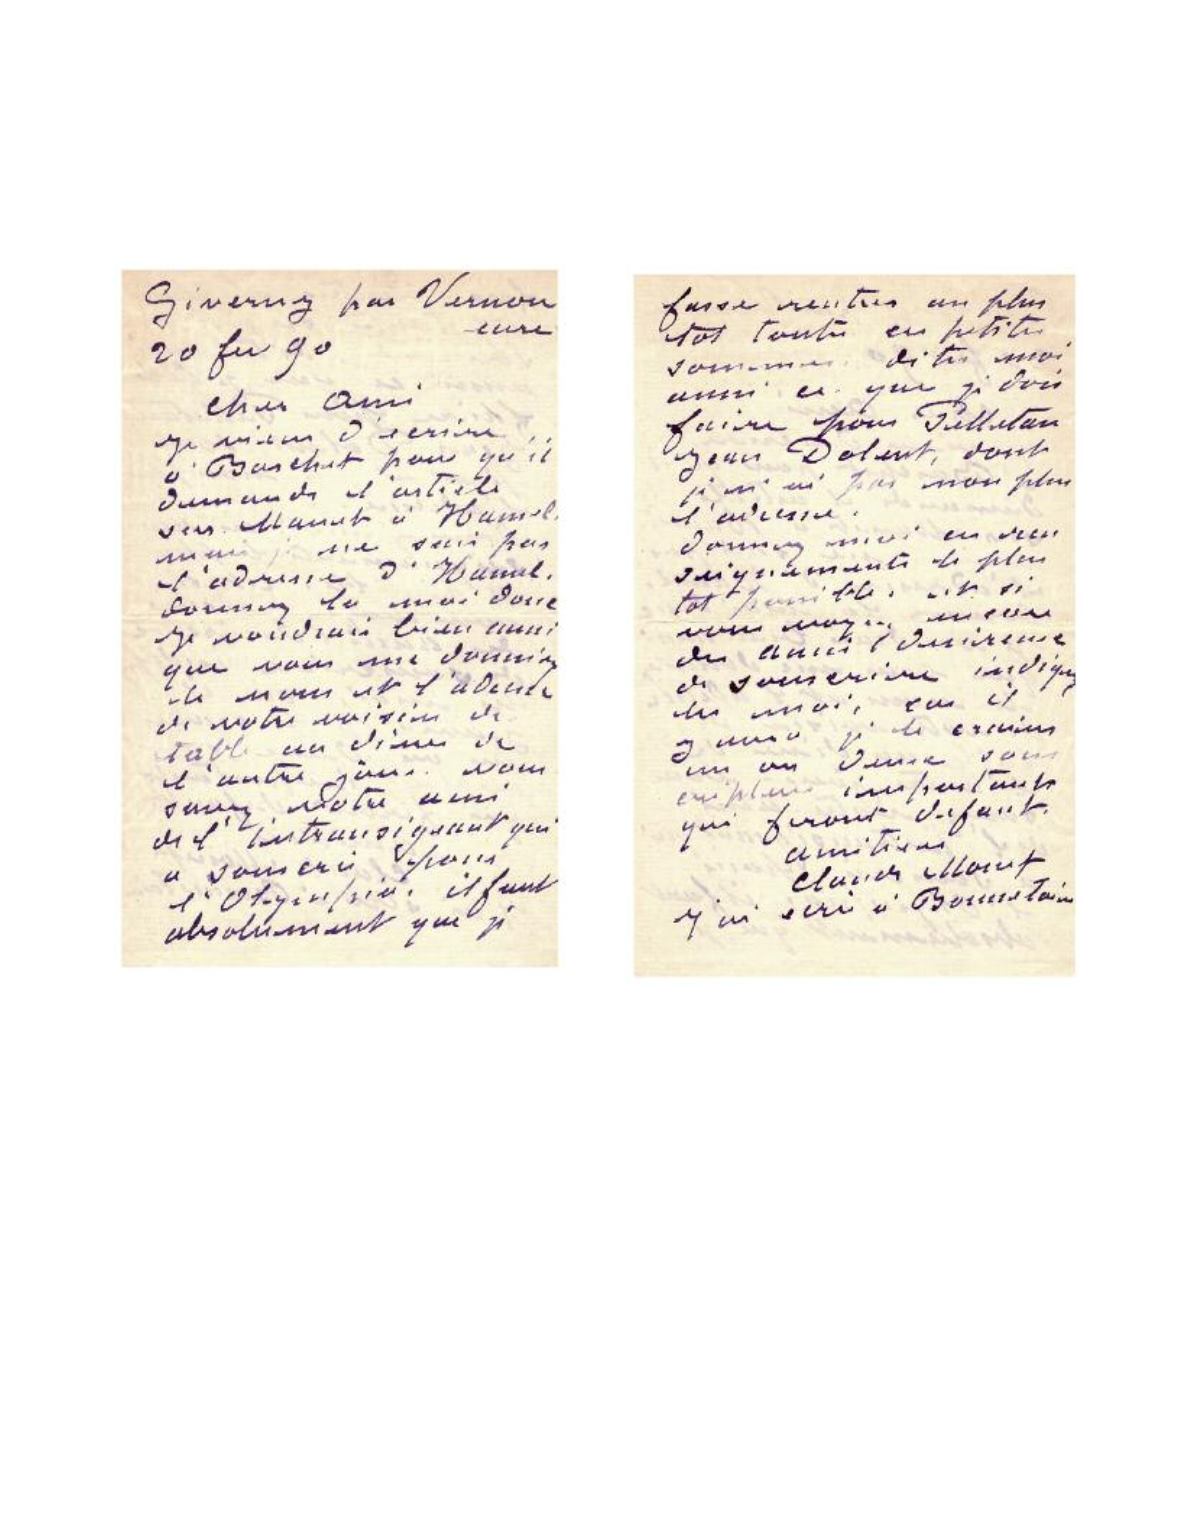 Giverny par Vernon
eure
20 fev 90
Cher Ami
je viens d'ecrire
à Baschet pour qu'il
demande l'article
sur Manet à Hamel.
mais je ne sais pas
l'adresse d'Hamel.
donnez la moi donc
je voudrais bien aussi
que vous me donniez
le nom et l'adresse
de votre voisin de
table au diner de
l'autre jour. vous
savez votre ami
de l'intransigeant qui
a souscri pour
l'Olympia. il faut
absolument que je
fasse rentrer au plus
tot toutes ces petites
sommes. dites moi
aussi ce que je dois
faire pour Pelletan
Jean Dolent, dont
je n'ai pas non plus
l'adresse.
donnez moi ces ren
seignements le plus
tot possible. et si
vous voyez encore
des amis desireux
de souscrire indiquez
les moi, car il
y aura je le crains
un ou deux sous
cripteurs importants
qui feront defaut.
amities
Claude Monet
j'ai ecri à Bonnetain